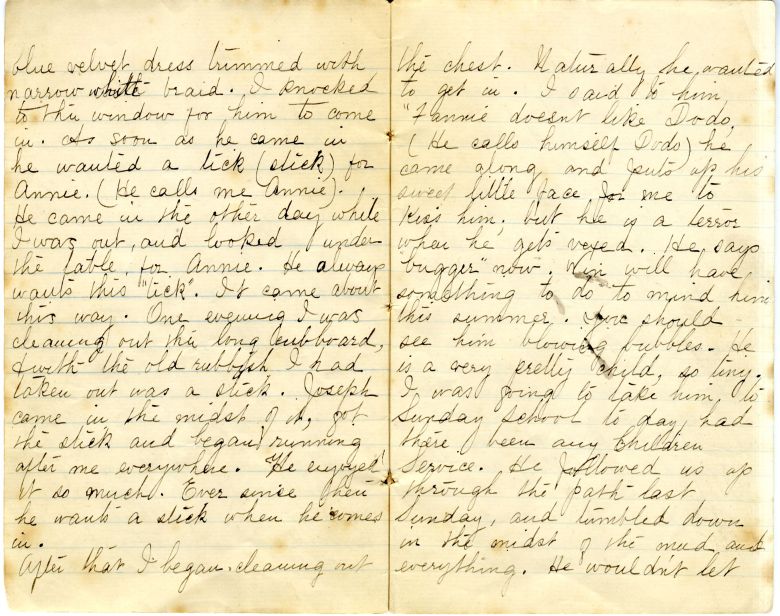 blue velvet dress trimmed with
narrow white braid. I knocked
to the window for him to come
in. As soon as he came in
he wanted a tick (stick) for
Annie. (He calls me Annie).
He came in the other day while
I was out, and looked under
the table, for Annie. He always
wants this "tick". It came about
this way. One evening I was
cleaning out the long cubboard,
& with the old rubbish I had
taken out was a stick. Joseph
came in the midst of it, got
the stick and began running
after me everywhere. He enjoyed
it so much. Ever since then
he wants a stick when he comes
in.
After that I began cleaning out
the chest. Naturally he wanted
to get in. I said to him,
"Fannie doesnt like Dodo,
(He calls himself Dodo) he
came along and puts up his
sweet little face, for me to
kiss him, but he is a terror
when he gets vexed. He says
"bugger" now. Win will have
something to do to mind him
this summer. You should
see him blowing bubbles. He
is a very pretty child, so tiny.
I was going to take him to
Sunday School to day, had
there been any Children
Service. He followed us up
through the path last
Sunday, and tumbled down
in the midst of the mud and
everything. He wouldn't let